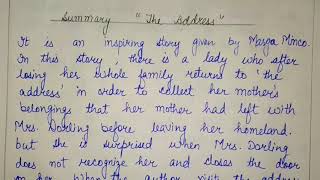 Summary "The Address"
It is an inspiring story given by Marga Minco.
In this story, there is a lady who after
losing her whole family returns to 'the
address' in order to collect her mother's
belongings that her mother had left with
Mrs. Dorling before leaving her homeland.
but she is surprised when Mrs. Dorling
does not recognize her and closes the door
on her. When the author visit the address